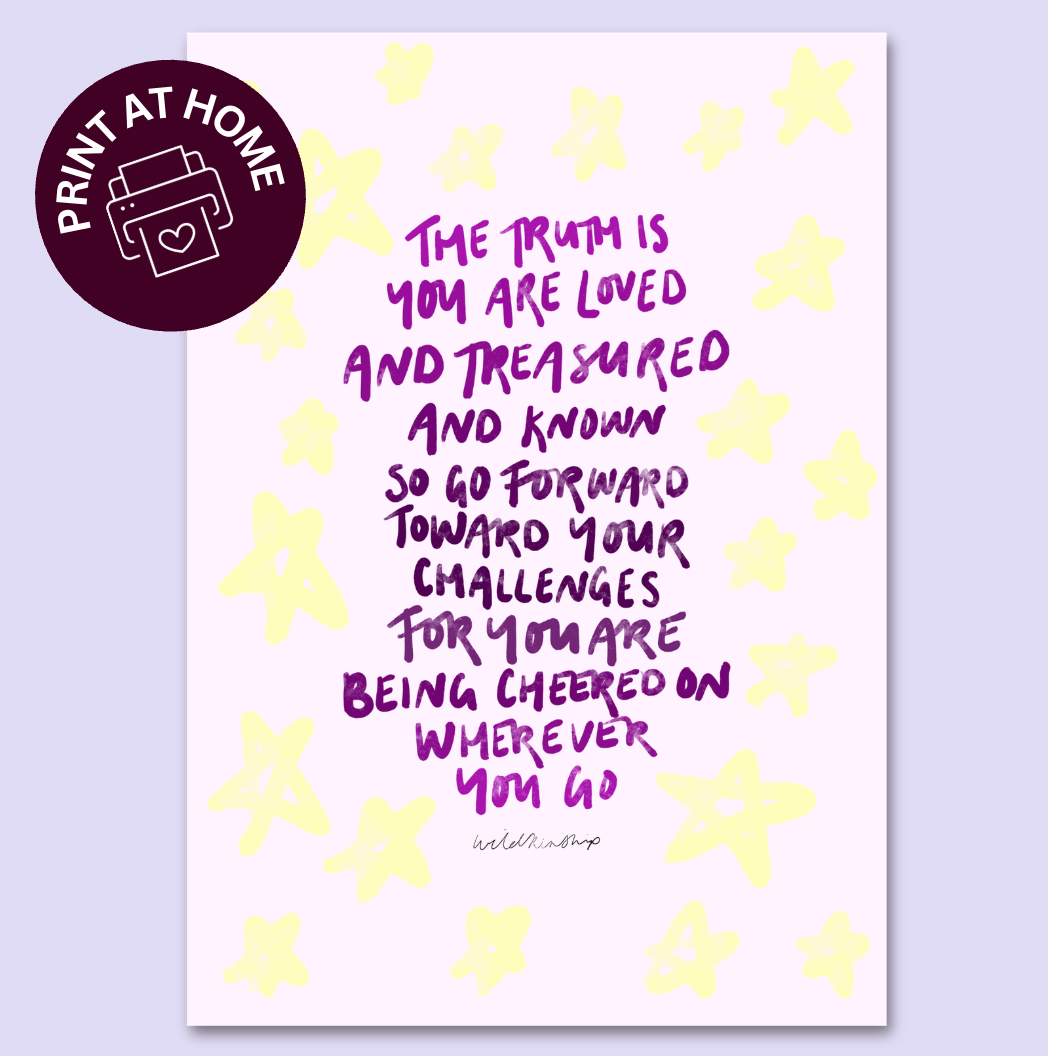 PRINT AT HOME
THE TRUTH IS
YOU ARE LOVED
AND TREASURED
AND KNOWN
SO GO FORWARD
TOWARD YOUR
CHALLENGES
FOR YOU ARE
BEING CHEERED ON
WHEREVER
YOU GO
wildkinship